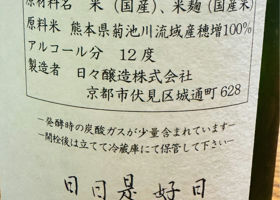 原材料名 米（国産）、米麹（国産米）
原料米 熊本県菊池川流域産穂増100%
アルコール分 12度
製造者 日々醸造株式会社
京都市伏見区城通町628
―発酵時の炭酸ガスが少量含まれています―
―開栓後は立てて冷蔵庫にて保管して下さい―
日日是好日